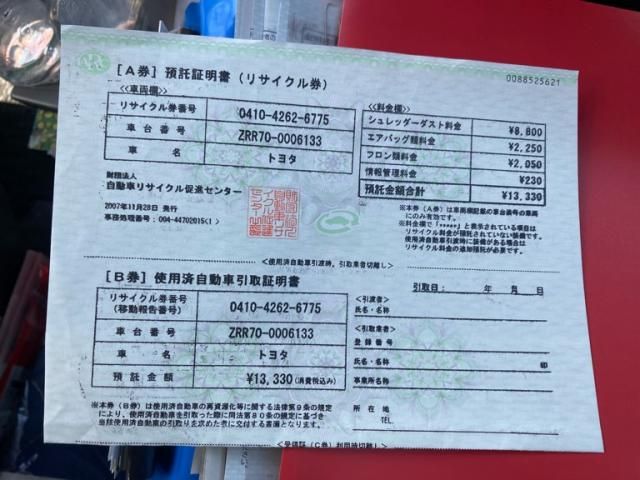 0088525621
[A券] 預託証明書 (リサイクル券)
<車両欄>
リサイクル券番号 0410-4262-6775
車台番号 ZRR70-0006133
車名 トヨタ
<料金欄>
シュレッダーダスト料金 ¥8,800
エアバッグ類料金 ¥2,250
フロン類料金 ¥2,050
情報管理料金 ¥230
預託金額合計 ¥13,330
財団法人
自動車リサイクル促進センター
2007年11月28日 発行
事務処理番号:004-44702015(1)
※本券(A券)は車両欄記載の車台番号の車両
にのみ有効です。
※料金欄で「*****」と表示されている項目は
リサイクル料金が預託されていない装備です。
使用済自動車引渡時に装備がある場合は
リサイクル料金の追加預託が必要です。
<使用済自動車引渡時、引取業者切離し>
[B券] 使用済自動車引取証明書
リサイクル券番号
(移動報告番号) 0410-4262-6775
車台番号 ZRR70-0006133
車名 トヨタ
預託金額 ¥13,330(消費税込み)
引取日: 年 月 日
<引渡者>
氏名・名称
<引取業者>
登録番号
氏名・名称 印
事業所名称
所在地
TEL
※本券(B券)は使用済自動車の再資源化等に関する法律第9条の規定
により、使用済自動車を引取った際に同法第80条の規定に基づき
当該使用済自動車の引取りを求めた者に交付する書面となります。
<受領証(C券)利用時切離し>